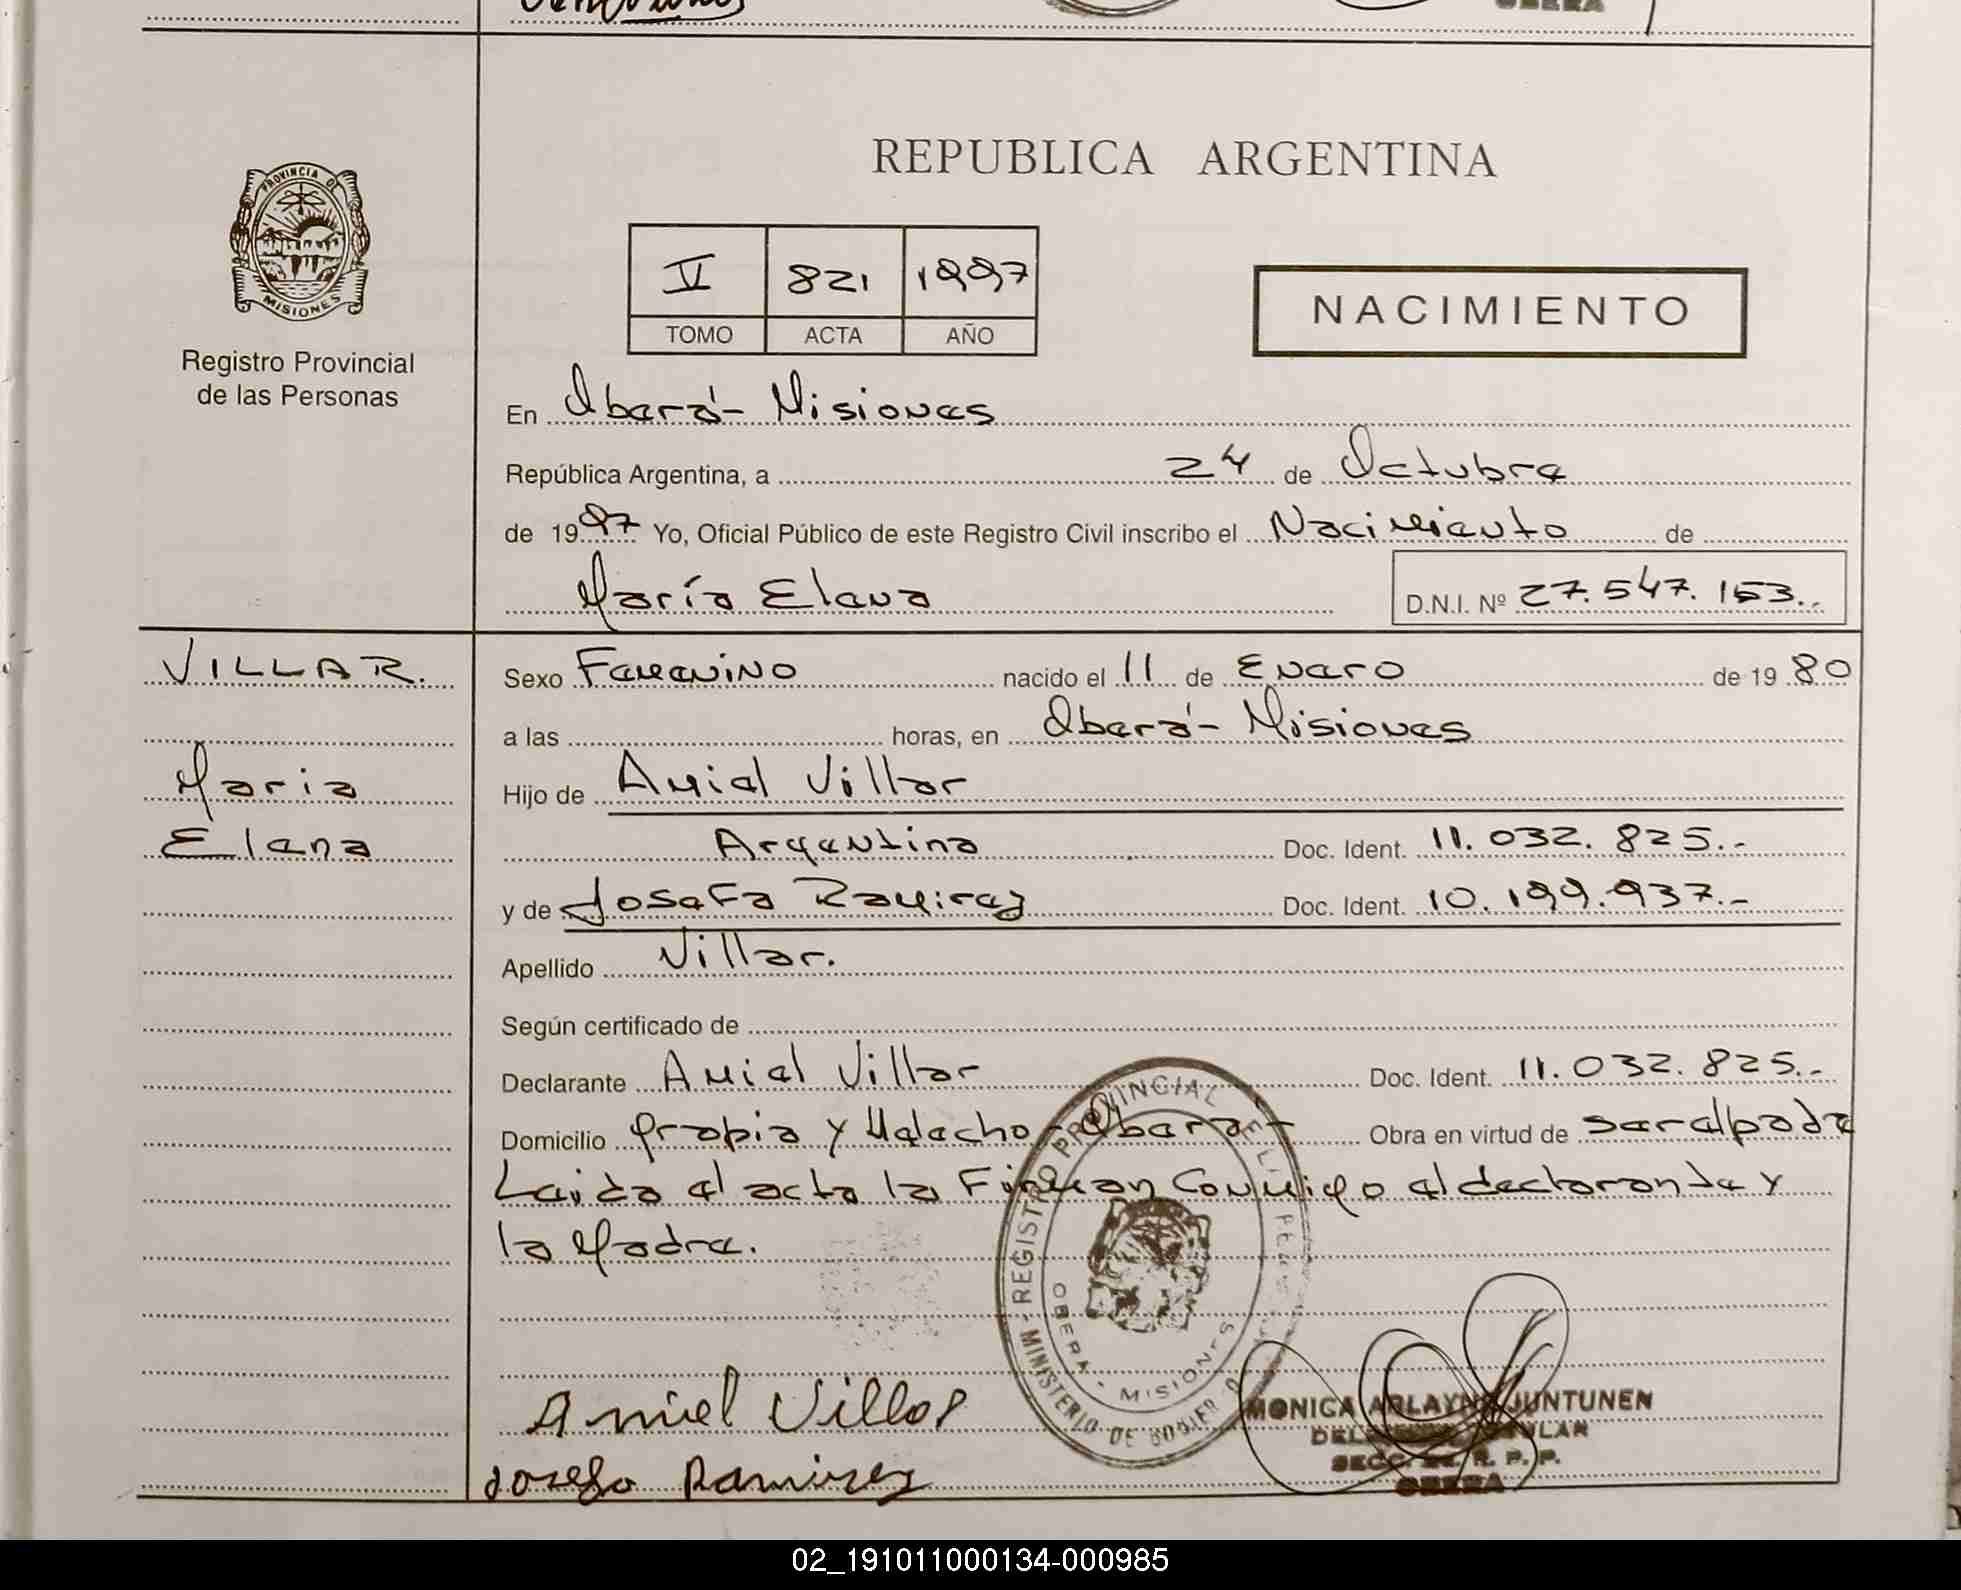 PROVINCIA DE
MISIONES
Registro Provincial
de las Personas
REPUBLICA ARGENTINA
V 821 1997
TOMO ACTA AÑO
NACIMIENTO
En Oberá - Misiones
República Argentina, a 24 de Octubre
de 1997 Yo, Oficial Público de este Registro Civil inscribo el Nacimiento de
María Elena D.N.I. Nº 27.547.153.-
VILLAR.
Maria
Elena
Sexo Femenino nacido el 11 de Enero de 1980
a las horas, en Oberá - Misiones
Hijo de Amiel Villar
Argentina Doc. Ident. 11.032.825.-
y de Josefa Ramirez Doc. Ident. 10.199.937.-
Apellido Villar.
Según certificado de
Declarante Amiel Villar Doc. Ident. 11.032.825.-
Domicilio Propio y Oberá - Obra en virtud de ser el padre
Leida el acta la Firman Conmigo el declarante y
la Madre.
REGISTRO PROVINCIAL DE LAS
OBERA - MISIONES
MINISTERIO DE GOBIERNO
Amiel Villar
Josefa Ramirez
MONICA ARLAYNE JUNTUNEN
TITULAR
SECC. R. P. P.
OBERA
02_191011000134-000985